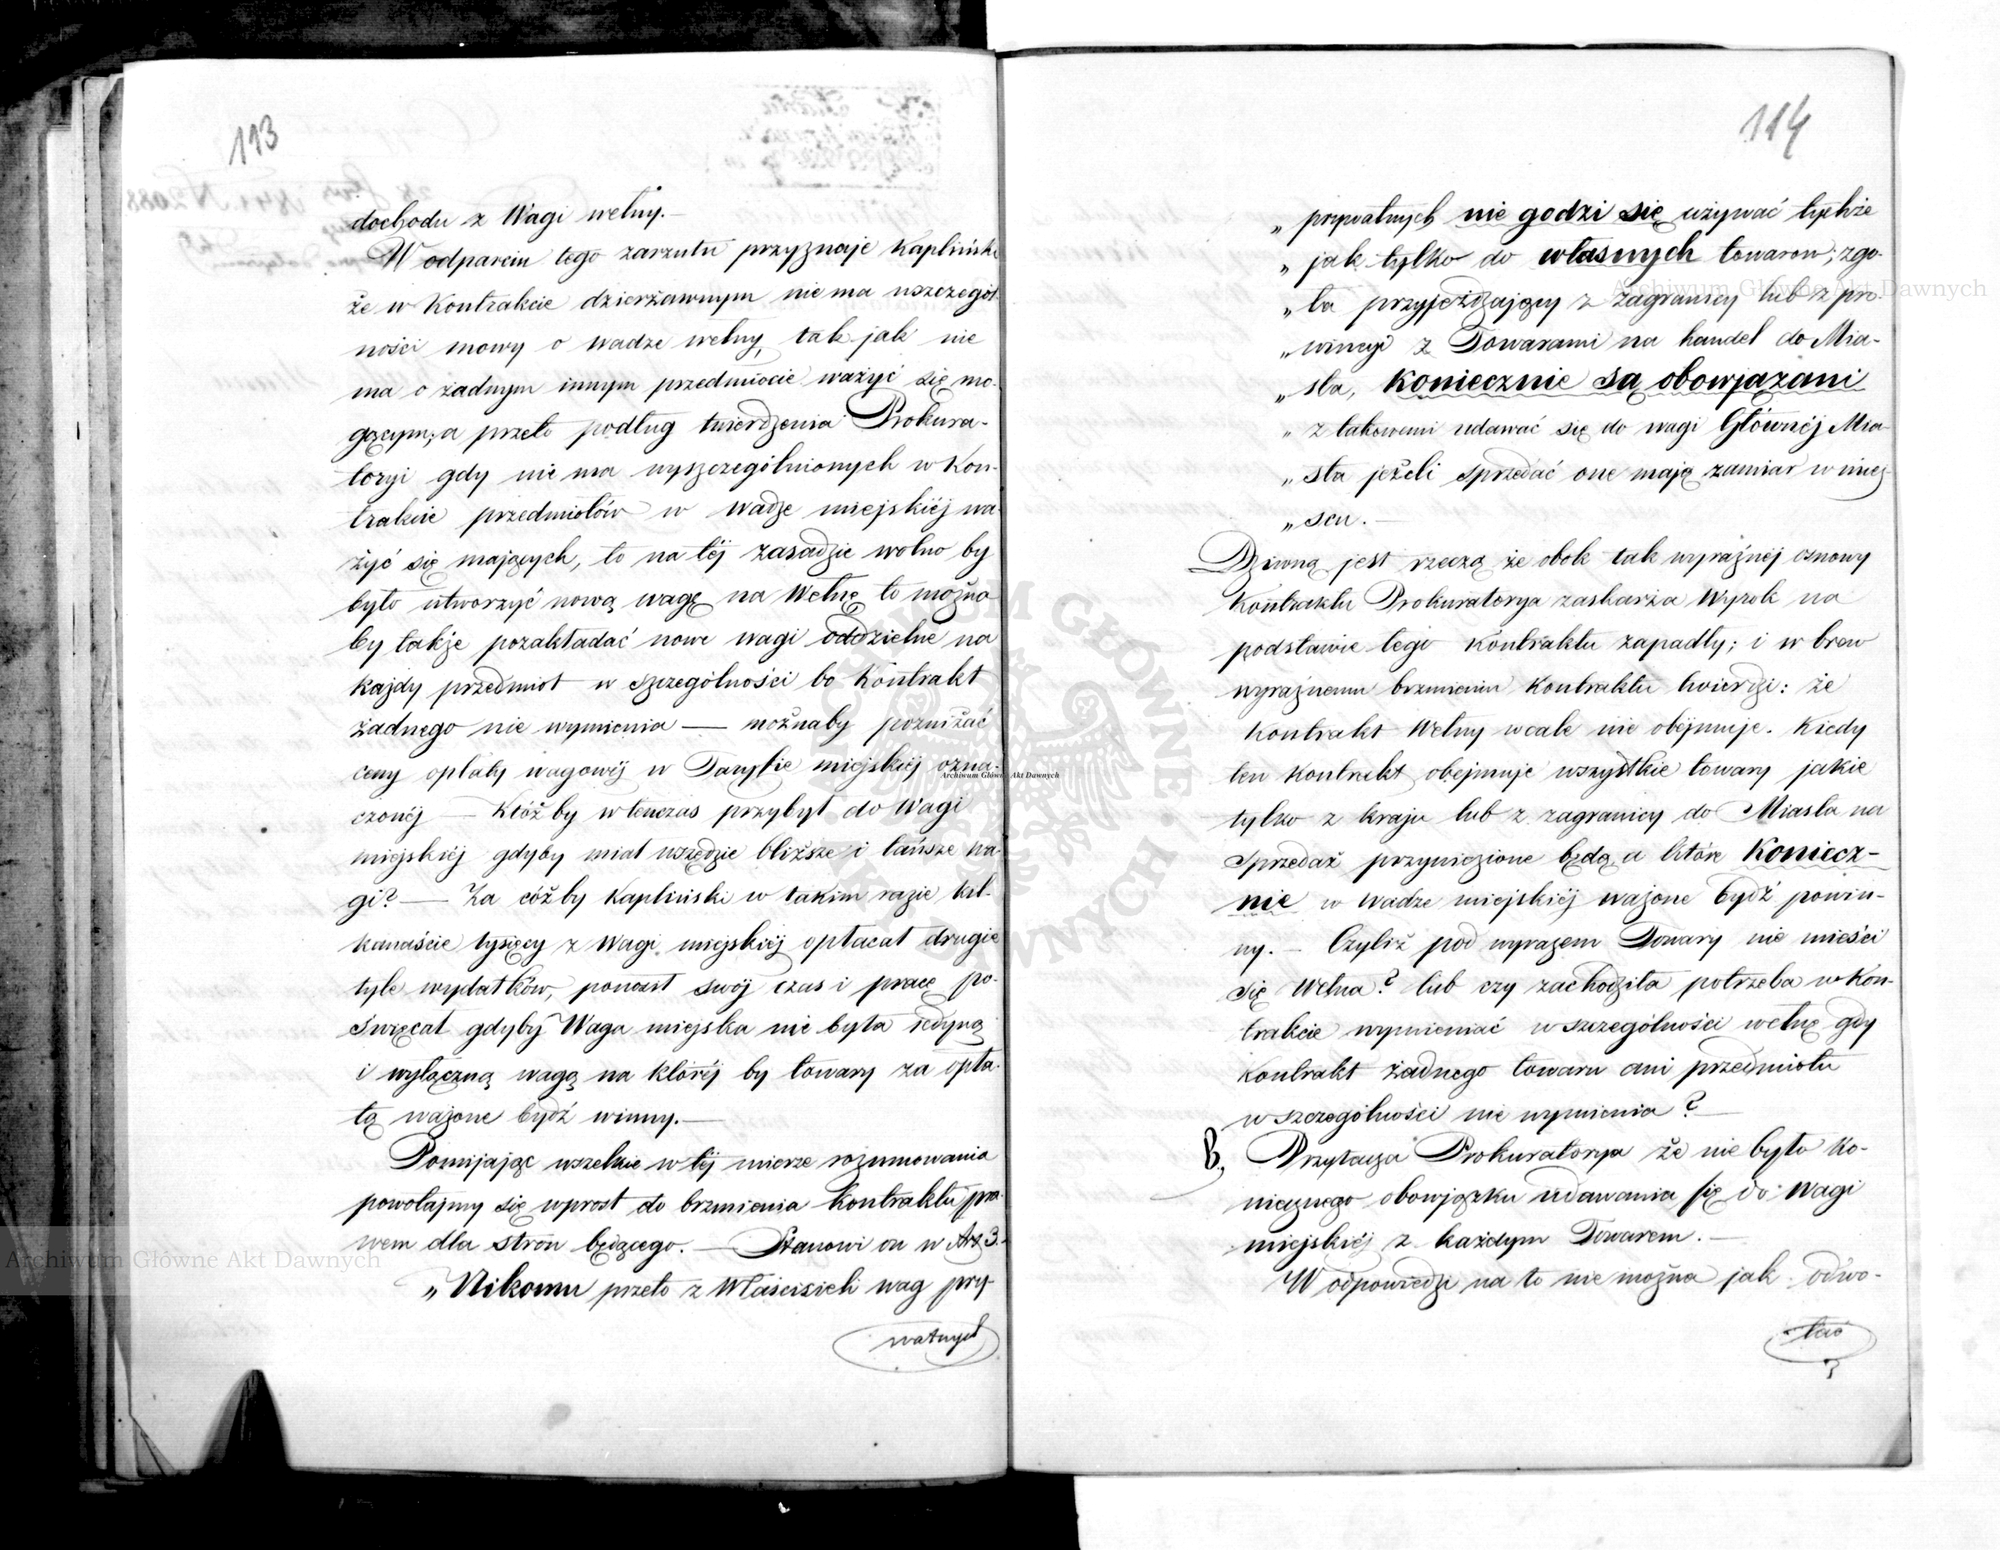 113
dochodu z Wagi wełny.—
W odparciu tego zarzutu przyznaje Kapliński
że w Kontrakcie dzierżawnym nie ma wszczegół
ności mowy o wadze wełny, tak jak nie
ma o żadnym innym przedmiocie ważyć się mo-
gącym; a przeto podług twierdzenia Prokura-
toryi gdy nie ma wyszczególnionych w Kon-
trakcie przedmiotów w wadze miejskiéj wa-
żyć się mających, to na téj zasadzie wolno by
było utworzyć nową wagę na Wełnę to można
by także pozakładać nowe wagi oddzielne na
każdy przedmiot w szczególności bo Kontrakt
żadnego nie wymienia — możnaby poznižać
ceny opłaty wagowéj w Taryfie miejskiéj ozna-
czonéj — Któżby wtenczas przybył do Wagi
miejskiéj gdyby miał wszędzie bliższe i tańsze wa-
gi? — Za cóżby Kapliński w takim razie kil-
kanaście tysięcy z Wagi miejskiéj opłacał drugie
tyle wydatków, ponosił swój czas i pracę po-
święcał gdyby Waga miejska nie była jedyną
i wyłączną wagą na któréj by towary za opła-
tą ważone bydź winny.—
Pomijając wszelkie w téj mierze rozumowania
powołajmy się wprost do brzmienia Kontraktu pra-
wem dla stron będącego. — Stanowi on w Art 3.
„Nikomu przeto z Właścicieli wag pry-
watnych
114
„prywatnych nie godzi się używać tychże
„jak tylko do własnych towarów; zgo-
„ła przyjeżdzający z zagranicy lub z pro-
„wincyi z Towarami na handel do Mia-
„sta, Koniecznie są obowjązani
„z takowemi udawać się do wagi Głównéj Mia-
„sta jeżeli sprzedać one mają zamiar w miej-
„scu.—
Dziwną jest rzeczą że obok tak wyraźnéj osnowy
Kontraktu Prokuratorya zaskarża Wyrok na
podstawie tego Kontraktu zapadły; i w brew
wyraźnemu brzmieniu Kontraktu twierdzi: że
Kontrakt Wełny wcale nie obéjmuje. Kiedy
ten Kontrakt obejmuje wszystkie towary jakie
tylko z kraju lub z zagranicy do Miasta na
sprzedaż przywiezione będą a które Koniecz-
nie w wadze miejskiéj ważone bydź powin-
ny. — Czyliż pod wyrazem Towary nie mieści
się Wełna? lub czy zachodziła potrzeba w Kon-
trakcie wymieniać w szczególności wełnę gdy
Kontrakt żadnego towaru ani przedmiotu
w szczególności nie wymienia? —
B, Przytacza Prokuratorya że nie było ko-
niecznego obowjązku udawania się do Wagi
miejskiéj z każdym Towarem.—
W odpowiedzi na to nie można jak odwo-
łać
Archiwum Główne Akt Dawnych
Archiwum Główne Akt Dawnych
Archiwum Główne Akt Dawnych
ARCHIWUM GŁÓWNE AKT DAWNYCH